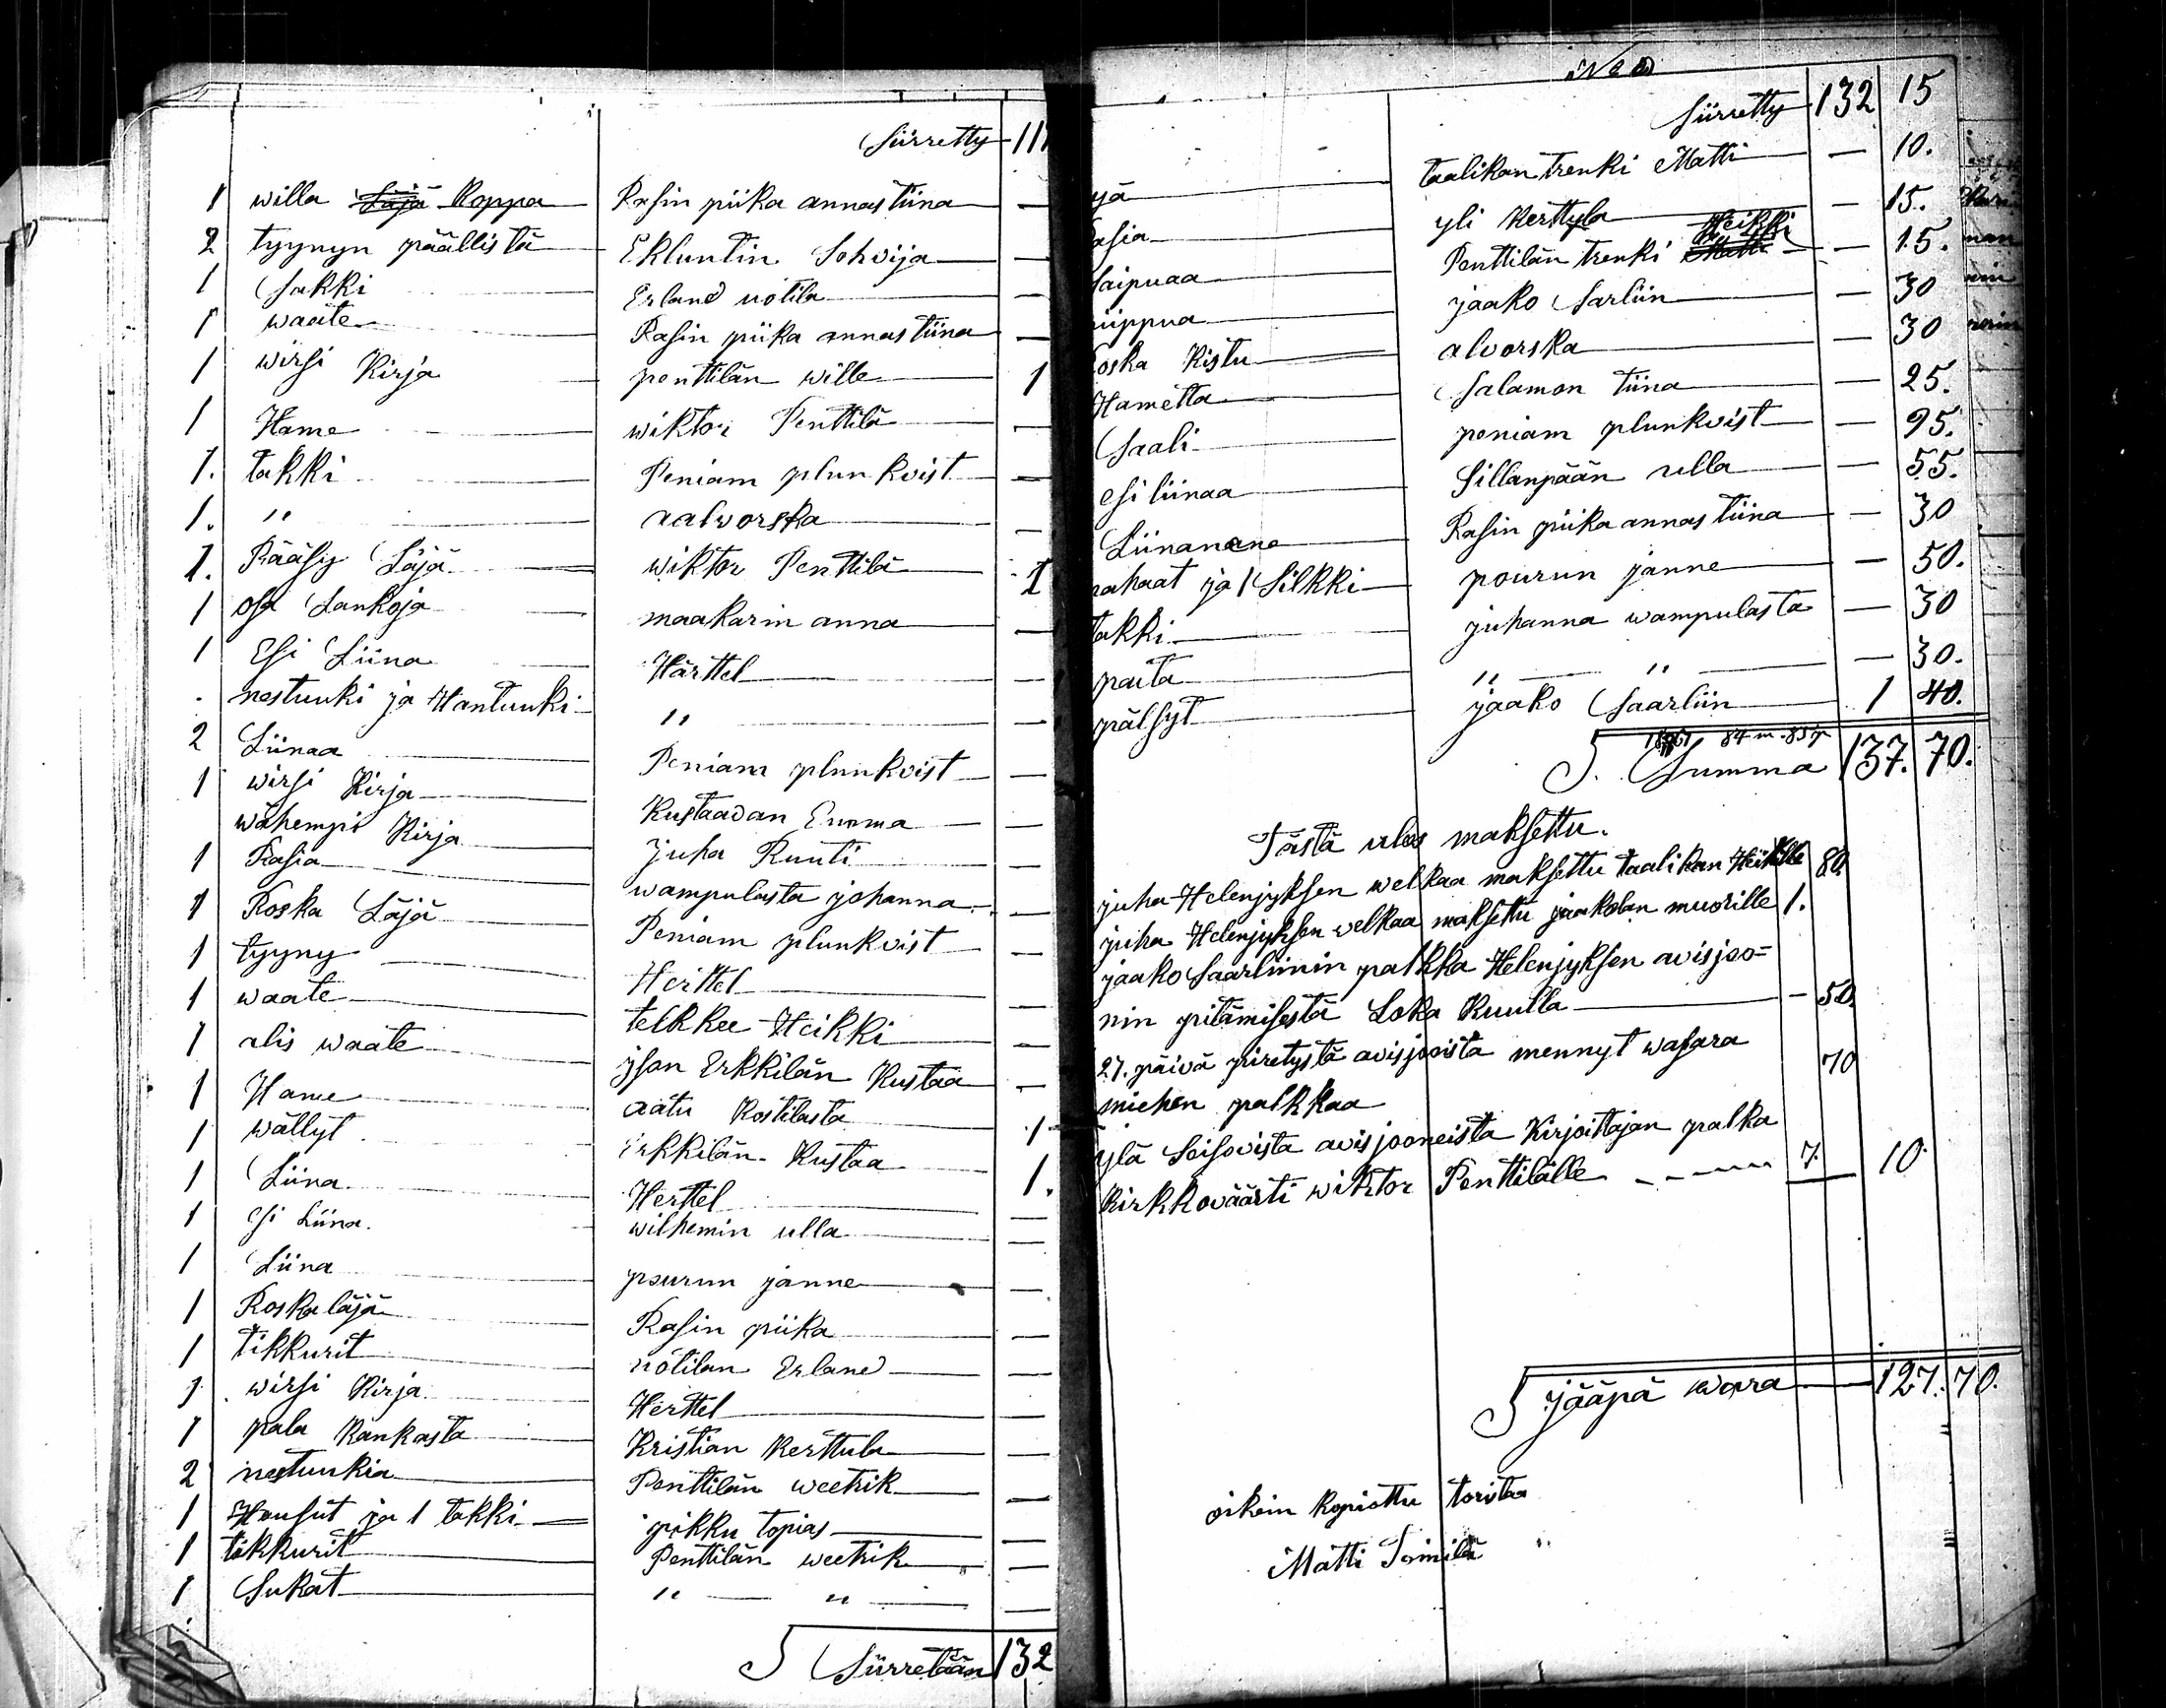 Siirretty 111
1 willa Läjä Koppa Rasin piika annastiina —
2 tyynyn päällistä Ekluntin Sohvija —
1 Sakki Erland uotila —
1 waate Rasin piika annastiina —
1 wirsi Kirja penttilän wille 1
1 Hame wiktor Penttilä —
1. takki Peniam plunkvist —
1. " aalvorska —
1. Rääsy Läjä wiktor Penttilä 1
1 osa Lankoja maakarin anna —
1 Esi Liina Härttel —
nestuuki ja Hantuuki " —
2 Liinaa Peniam plunkvist —
1 wirsi Kirja Kustaavan Emma —
wähempi Kirja juha Ruuti
1 Rasia wampulasta johanna —
1 Roska Läjä Peniam plunkvist —
1 tyyny Herttel —
1 waate telkkee Heikki —
1 alis waate ison Erkkilän Kustaa —
1 Hame aatu Kostilasta 1
1 wällyt Erkkilän Kustaa 1.
1 Liina Herttel —
1 esi Liina wilhemin ulla —
1 Liina pourun janne —
1 Roskaläjä Rasin piika —
1 tikkurit uotilan Erland —
1 wirsi Kirja Herttel —
1 pala Kankasta Kristian Kerttula —
2 nestuukia Penttilän weetrik —
1 Housut ja 1 takki pikku topias —
1 tikkurit Penttilän weetrik —
1 Sukat " " —
S Siirretään 132
Siirretty 132 15
jä taalikan trenki Matti — 10.
asia yli Kerttyla — 15.
Saipuaa Penttilän trenki Matti Heikki — 15.
piippua jaako Sarliin — 30
oska Kistu alvorska — 30
Hametta Salamon tiina — 25.
Saali peniam plunkvist — 95.
esi liinaa Sillanpään ulla — 55.
Liinanena Rasin piika annastiina — 30
nahaat ja 1 Silkki pourun janne — 50.
takki juhanna wampulasta — 30
paita " " — 30.
pälsyt jaako Saarliin 1 40.
S. Summa 137. 70.
Tästä ulos maksettu.
juha Helenjyksen welkaa maksettu taalikan Heikille 80.
juha Helenjyksen welkaa maksettu jaakolan muorille 1.
jaako Saarliinin palkka Helenjyksen avisjoo=
nin pitämisestä Loka Kuulla — 50.
27. päivä piretystä avisjonista mennyt wasara
miehen palkkaa 70
ylä Seisovista avisjooneista Kirjoittajan palka
Kirkkoväärti wiktor Penttilälle 7. 10.
S jääpä wara 127. 70.
oikein kopiottu toristaa
Matti